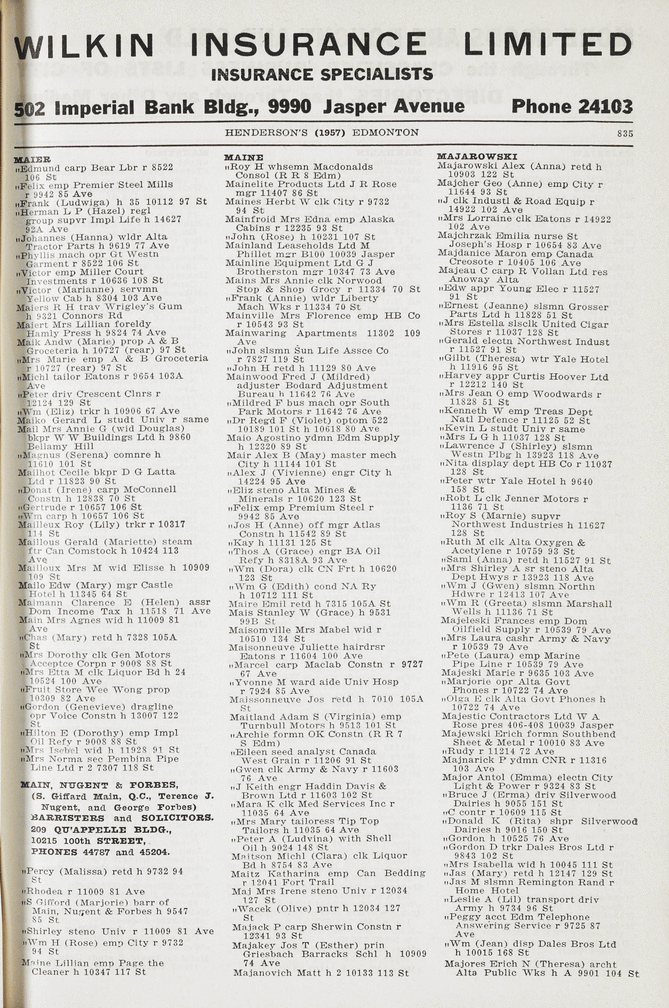 WILKIN INSURANCE LIMITED
INSURANCE SPECIALISTS
502 Imperial Bank Bldg., 9990 Jasper Avenue Phone 24103
HENDERSON'S (1957) EDMONTON 835
MAIER
"Edmund carp Bear Lbr r 8522
106 St
"Felix emp Premier Steel Mills
r 9942 85 Ave
"Frank (Ludwiga) h 35 10112 97 St
"Herman L P (Hazel) regl
group supvr Impl Life h 14627
92A Ave
"Johannes (Hanna) wldr Alta
Tractor Parts h 9619 77 Ave
"Phyllis mach opr Gt Westn
Garment r 8522 106 St
"Victor emp Miller Court
Investments r 10636 108 St
"Victor (Marianne) servmn
Yellow Cab h 8304 103 Ave
Maiers R H trav Wrigley's Gum
h 9321 Connors Rd
Maiert Mrs Lillian foreldy
Hamly Press h 9824 74 Ave
Maik Andw (Marie) prop A & B
Groceteria h 10727 (rear) 97 St
"Mrs Marie emp A & B Groceteria
r 10727 (rear) 97 St
"Michl tailor Eatons r 9654 103A
Ave
"Peter driv Crescent Clnrs r
12124 129 St
"Wm (Eliz) trkr h 10906 67 Ave
Maiko Gerard L studt Univ r same
Mail Mrs Annie G (wid Douglas)
bkpr W W Buildings Ltd h 9860
Bellamy Hill
"Magnus (Serena) comnre h
11610 101 St
Mailhot Cecile bkpr D G Latta
Ltd r 11823 90 St
"Donat (Irene) carp McConnell
Constn h 12838 70 St
"Gertrude r 10657 106 St
"Wm carp h 10657 106 St
Mailleux Roy (Lily) trkr r 10317
114 St
Maillous Gerald (Mariette) steam
ftr Can Comstock h 10424 113
Ave
Mailloux Mrs M wid Elisse h 10909
109 St
Mailo Edw (Mary) mgr Castle
Hotel h 11345 64 St
Maimann Clarence E (Helen) assr
Dom Income Tax h 11518 71 Ave
Main Mrs Agnes wid h 11009 81
Ave
"Chas (Mary) retd h 7328 105A
St
"Mrs Dorothy clk Gen Motors
Acceptce Corpn r 9008 88 St
"Mrs Etta M clk Liquor Bd h 24
10524 100 Ave
"Fruit Store Wee Wong prop
10309 82 Ave
"Gordon (Genevieve) dragline
opr Voice Constn h 13007 122
St
"Hilton E (Dorothy) emp Impl
Oil Refy r 9008 88 St
"Mrs Isobel wid h 11928 91 St
"Mrs Norma sec Pembina Pipe
Line Ltd r 2 7307 118 St
MAIN, NUGENT & FORBES,
(S. Giffard Main, Q.C., Terence J.
Nugent, and George Forbes)
BARRISTERS and SOLICITORS.
209 QU'APPELLE BLDG.,
10215 100th STREET,
PHONES 44787 and 45204.
"Percy (Malissa) retd h 9732 94
St
"Rhodea r 11009 81 Ave
"S Gifford (Marjorie) barr of
Main, Nugent & Forbes h 9547
85 St
"Shirley steno Univ r 11009 81 Ave
"Wm H (Rose) emp City r 9732
94 St
Maine Lillian emp Page the
Cleaner h 10347 117 St
MAINE
"Roy H whsemn Macdonalds
Consol (R R 8 Edm)
Mainelite Products Ltd J R Rose
mgr 11407 86 St
Maines Herbt W clk City r 9732
94 St
Mainfroid Mrs Edna emp Alaska
Cabins r 12235 93 St
"John (Rose) h 10231 107 St
Mainland Leaseholds Ltd M
Phillet mgr B100 10039 Jasper
Mainline Equipment Ltd G J
Brotherston mgr 10347 73 Ave
Mains Mrs Annie clk Norwood
Stop & Shop Grocy r 11334 70 St
"Frank (Annie) wldr Liberty
Mach Wks r 11334 70 St
Mainville Mrs Florence emp HB Co
r 10543 93 St
Mainwaring Apartments 11302 109
Ave
"John slsmn Sun Life Assce Co
r 7827 119 St
"John H retd h 11129 80 Ave
Mainwood Fred J (Mildred)
adjuster Bodard Adjustment
Bureau h 11642 76 Ave
"Mildred F bus mach opr South
Park Motors r 11642 76 Ave
"Dr Regd F (Violet) optom 522
10189 101 St h 10618 80 Ave
Maio Agostino ydmn Edm Supply
h 12320 89 St
Mair Alex B (May) master mech
City h 11144 101 St
"Alex J (Vivienne) engr City h
14224 95 Ave
"Eliz steno Alta Mines &
Minerals r 10620 123 St
"Felix emp Premium Steel r
9942 85 Ave
"Jos H (Anne) off mgr Atlas
Constn h 11542 89 St
"Kay h 11131 125 St
"Thos A (Grace) engr BA Oil
Refy h 8318A 93 Ave
"Wm (Dora) clk CN Frt h 10620
123 St
"Wm G (Edith) cond NA Ry
h 10712 111 St
Maire Emil retd h 7315 105A St
Mais Stanley W (Grace) h 9531
99B St
Maisomville Mrs Mabel wid r
10510 134 St
Maisonneuve Juliette hairdrsr
Eatons r 11604 100 Ave
"Marcel carp Maclab Constn r 9727
67 Ave
"Yvonne M ward aide Univ Hosp
r 7924 85 Ave
Maissonneuve Jos retd h 7010 105A
St
Maitland Adam S (Virginia) emp
Turnbull Motors h 9513 101 St
"Archie formn OK Constn (R R 7
S Edm)
"Eileen seed analyst Canada
West Grain r 11206 91 St
"Gwen clk Army & Navy r 11603
76 Ave
"J Keith engr Haddin Davis &
Brown Ltd r 11603 102 St
"Mara K clk Med Services Inc r
11035 64 Ave
"Mrs Mary tailoress Tip Top
Tailors h 11035 64 Ave
"Peter A (Ludvina) with Shell
Oil h 9024 148 St
Maitson Michl (Clara) clk Liquor
Bd h 8754 83 Ave
Maitz Katharina emp Can Bedding
r 12041 Fort Trail
Maj Mrs Irene steno Univ r 12034
127 St
"Wacek (Olive) pntr h 12034 127
St
Majack P carp Sherwin Constn r
12341 93 St
Majakey Jos T (Esther) prin
Griesbach Barracks Schl h 10909
74 Ave
Majanovich Matt h 2 10133 113 St
MAJAROWSKI
Majarowski Alex (Anna) retd h
10903 122 St
Majcher Geo (Anne) emp City r
11644 93 St
"J clk Industl & Road Equip r
14922 102 Ave
"Mrs Lorraine clk Eatons r 14922
102 Ave
Majchrzak Emilia nurse St
Joseph's Hosp r 10654 83 Ave
Majdanice Maron emp Canada
Creosote r 10405 106 Ave
Majeau C carp R Vollan Ltd res
Anoway Alta
"Edw appr Young Elec r 11527
91 St
"Ernest (Jeanne) slsmn Grosser
Parts Ltd h 11828 51 St
"Mrs Estella slsclk United Cigar
Stores r 11037 128 St
"Gerald electn Northwest Indust
r 11527 91 St
"Gilbt (Theresa) wtr Yale Hotel
h 11916 95 St
"Harvey appr Curtis Hoover Ltd
r 12212 140 St
"Mrs Jean O emp Woodwards r
11828 51 St
"Kenneth W emp Treas Dept
Natl Defence r 11125 52 St
"Kevin L studt Univ r same
"Mrs L G h 11037 128 St
"Lawrence J (Shirley) slsmn
Westn Plbg h 13923 118 Ave
"Nita display dept HB Co r 11037
128 St
"Peter wtr Yale Hotel h 9640
158 St
"Robt L clk Jenner Motors r
1136 71 St
"Roy S (Marnie) supvr
Northwest Industries h 11627
128 St
"Ruth M clk Alta Oxygen &
Acetylene r 10759 93 St
"Saml (Anna) retd h 11527 91 St
"Mrs Shirley A sr steno Alta
Dept Hwys r 13923 118 Ave
"Wm J (Gwen) slsmn Northn
Hdwre r 12413 107 Ave
"Wm R (Greeta) slsmn Marshall
Wells h 11136 71 St
Majeleski Frances emp Dom
Oilfield Supply r 10539 79 Ave
"Mrs Laura cashr Army & Navy
r 10539 79 Ave
"Pete (Laura) emp Marine
Pipe Line r 10539 79 Ave
Majeski Marie r 9635 103 Ave
"Marjorie opr Alta Govt
Phones r 10722 74 Ave
"Olga E clk Alta Govt Phones h
10722 74 Ave
Majestic Contractors Ltd W A
Rose pres 406-408 10039 Jasper
Majewski Erich formn Southbend
Sheet & Metal r 10010 83 Ave
"Rudy r 11214 72 Ave
Majnarick P ydmn CNR r 11316
103 Ave
Major Antol (Emma) electn City
Light & Power r 9324 83 St
"Bruce J (Erma) driv Silverwood
Dairies h 9055 151 St
"C contr r 10609 115 St
"Donald K (Rita) shpr Silverwood
Dairies h 9016 150 St
"Gordon h 10525 76 Ave
"Gordon D trkr Dales Bros Ltd r
9843 102 St
"Mrs Isabella wid h 10045 111 St
"Jas (Mary) retd h 12147 129 St
"Jas M slsmn Remington Rand r
Home Hotel
"Leslie A (Lil) transport driv
Army h 9734 96 St
"Peggy acct Edm Telephone
Answering Service r 9725 87
Ave
"Wm (Jean) disp Dales Bros Ltd
h 10015 168 St
Majores Erich N (Theresa) archt
Alta Public Wks h A 9901 104 St